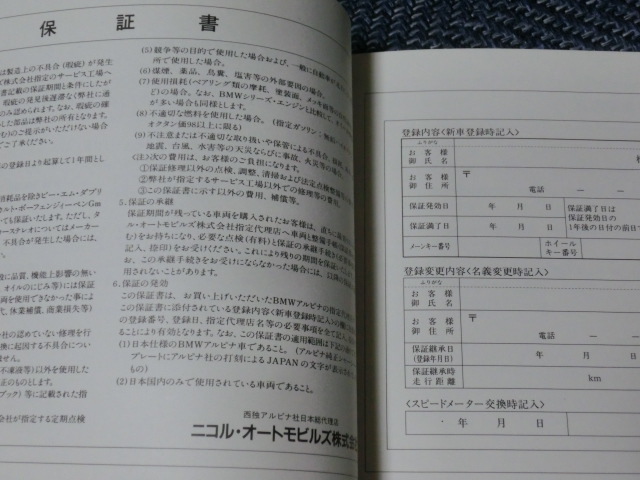 保証書
は製造上の不具合(瑕疵)が発生
ズ株式会社指定のサービス工場へ
書記載の保証期間と条件にしたが
瑕疵の発見後遅滞なく弊社に通
のみ認められます。なお、瑕疵の確
した部品は弊社の所有となります。
)のご提示がいただけない場合
ご了承ください。
の登録日より起算して1年間とし
消耗品を除きビー・エム・ダブリ
ても保証いたします。ただし、タ
カーステレオについてはメーカー
不具合が発生した場合には、
に品質、機能上影響の無い
オイルのにじみ等)には保証
両を使用できなかった事によ
代、休業補償、商業損失等)
社の認めていない修理を行
換に起因する不具合につい
ません。
不凍液等)以外を使用した
正のものとします。
ブック)等に記載された指
会社が指定する定期点検
(5)競争等の目的で使用した場合および、一般に自動車が
所で使用した場合。
(6)煤煙、薬品、鳥糞、塩害等の外部要因の場合。
(7)使用損耗(ベアリング類の摩耗、塗装面、メッキ
ど)の場合。なお、BMWシリーズ・エンジンと比較して、オイ
が多い場合も同様とします。
(8)不適切な燃料を使用した場合。(指定ガソリン:無鉛
オクタン価98以上に限る)
(9)不注意または不適切な取り扱いや保管による不具合、
地震、台風、水害等の天災ならびに事故、火災等の場合
(注)次の費用は、お客様のご負担になります。
①保証修理以外の点検、調整、清掃および法定点検整備
②弊社が指定するサービス工場以外での修理等の費用
③この保証書に示す以外の費用、補償。
5.保証の承継
保証期間が残っている車両を購入されたお客様は、直ちに
ル・オートモビルズ株式会社指定代理店へ車両と整備手帳(保証書
む)をお持ちになり、必要な点検(有料)と保証の承継手続き(
記入、捺印)をお受けください。これにより残りの期間を保証いた
お、この承継手続きをお受けにならなかった場合には、以降の
用されないことがあります。
6.保証の発効
この保証書は、お買い上げいただいたBMWアルピナの指定代
この保証書に添付されている登録内容(新車登録時記入)の欄
の登録番号、登録日、指定代理店名等の必要事項を全て記入、
ることにより有効となります。なお、この保証書の適用範囲は下記の
(1)日本仕様のBMWアルピナ車であること。(アルピナ純正エン
プレートにアルピナ社の打刻によるJAPANの文字が表示され
もの)
(2)日本国内のみで使用されている車両であること。
西独アルピナ社日本総代理店
ニコル・オートモビルズ株式会
登録内容〈新車登録時記入〉
ふりがな
お客様
御氏名
様
お客様
御住所
〒
電話 ー ー
保証発効日 年 月 日
保証満了日は
保証発効日の
1年後の日付の前日で
保証満了日 年 月 日
メーンキー番号
ホイール
キー番号
登録変更内容〈名義変更時記入〉
ふりがな
お客様
御氏名
お客様
御住所
〒
電話 ー ー
保証継承日
(登録年月日)
年 月 日
保証継承時
走行距離
km
〈スピードメーター交換時記入〉
・ 年 月 日